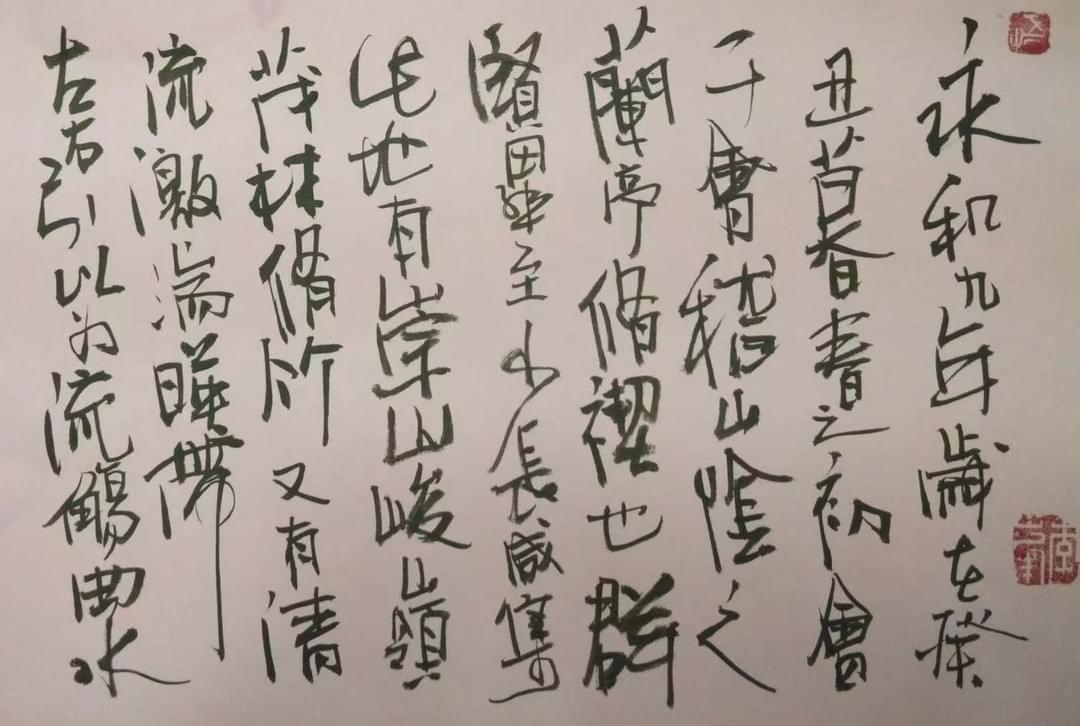 永和九年歲在癸
丑暮春春之初會
于會稽山陰之
蘭亭脩禊也群
賢畢至少長咸集
此地有崇山峻嶺
茂林脩竹又有清
流激湍暎帶
左右引以為流觴曲水